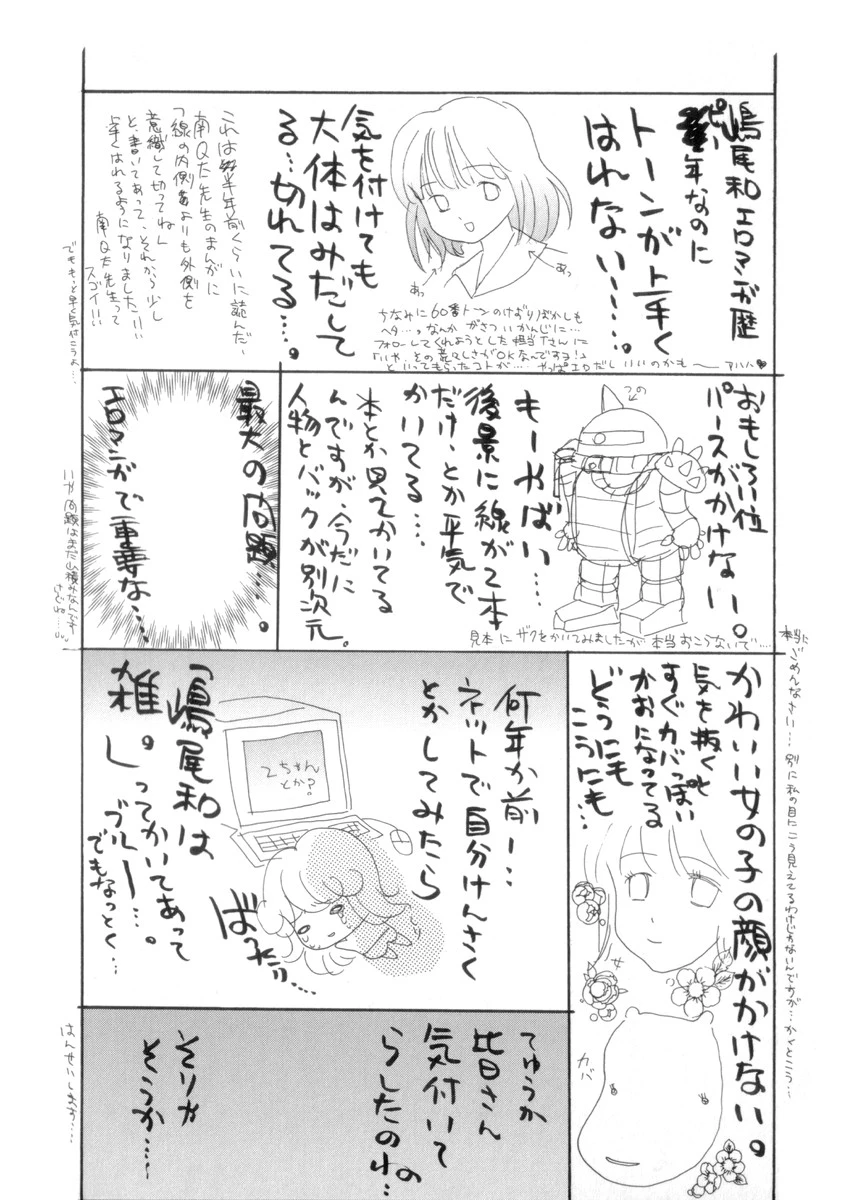 嶋尾和エロマンガ歴
ピー年なのに
トーンが上手く
はれない……。
気を付けても
大体はみだして
る…切れてる…。
あっ
あっ
ちなみに60番トーンのけずりぼかしも
ヘタ…。なんか がさついかんじに…
フォローしてくれようとした担当Tさんに
「いや、その荒々しさがOKなんですヨ!」
といってもらったコトが…。やっぱエロだしいいのかも〜 アハハ♥
これは半年前くらいに読んだ、
南Q太先生のまんがに
「線の内側よりも外側を
意識して切ってね」
と、書いてあって、それから少し
上手くはれるようになりました!!!
南Q太先生って
スゴイ!!!
でももっと早く気付こうよ…
おもしろい位
パースがかけない。
つの
もーやばい…
後景に線が2本
だけ、とか平気で
かいてる…
本とか見てかいてる
んですが、今だに
人物とバックが別次元。
見本にザクをかいてみましたが本当おこらないで…
最大の問題…。
エロマンガで重要な…
いや問題はまだ山積みなんです
けどね…。
かわいい女の子の顔がかけない。
気を抜くと
すぐカバっぽい
かおになってる
どうにも
こうにも…
女
カバ
本当に
ごめんなさい… 別に私の目にこう見えてるわけじゃないんですが…かくとこう…
何年か前ー…
ネットで自分けんさく
とかしてみたら
2ちゃん
とか?
「嶋尾和は
雑。」ってかいてあって
ブルー…。
でもなっとく…
ばったり…
てゆうか
皆さん
気付いて
らしたのね…
そりゃ
そうか……
はんせいします…